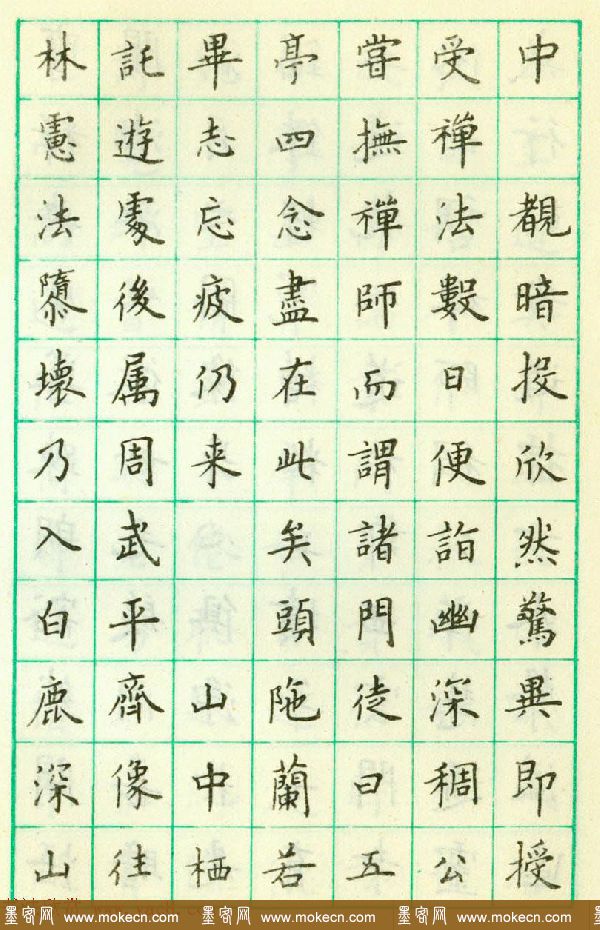 中觀暗投欣然驚異即授
受禪法數日便詣幽深稠公
嘗撫禪師而謂諸門徒曰五
亭四念盡在此矣頭陁蘭若
畢志忘疲仍来山中栖
託遊處後属周武平齊像往
林慮法隳壞乃入白鹿深山
墨客网 www.mokecn.com 墨客网 www.mokecn.com 墨客网 www.mokecn.com